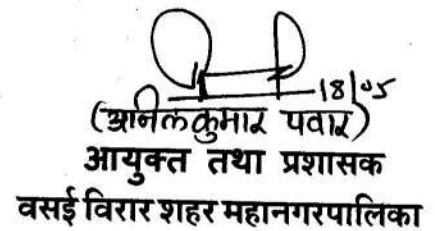 18/05
(अनिलकुमार पवार)
आयुक्त तथा प्रशासक
वसई विरार शहर महानगरपालिका